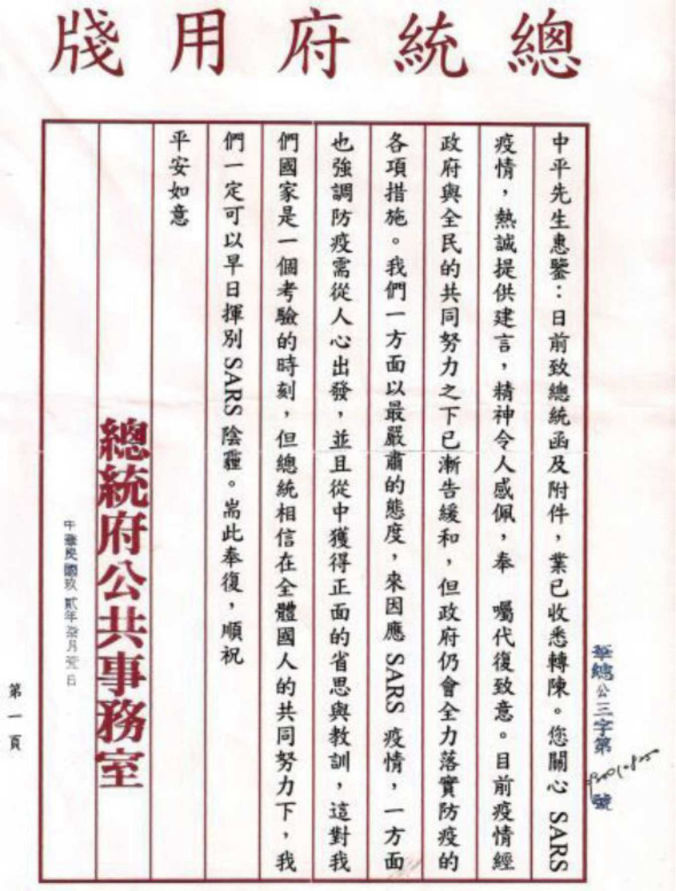 總統府用牋
華總公三字第 號
中平先生惠鑒：日前致總統函及附件，業已收悉轉陳。您關心 SARS
疫情，熱誠提供建言，精神令人感佩，奉　囑代復致意。目前疫情經
政府與全民的共同努力之下已漸告緩和，但政府仍會全力落實防疫的
各項措施。我們一方面以最嚴肅的態度，來因應 SARS 疫情，一方面
也強調防疫需從人心出發，並且從中獲得正面的省思與教訓，這對我
們國家是一個考驗的時刻，但總統相信在全體國人的共同努力下，我
們一定可以早日揮別 SARS 陰霾。耑此奉復，順祝
平安如意
總統府公共事務室
中華民國玖貳年月日
第一頁